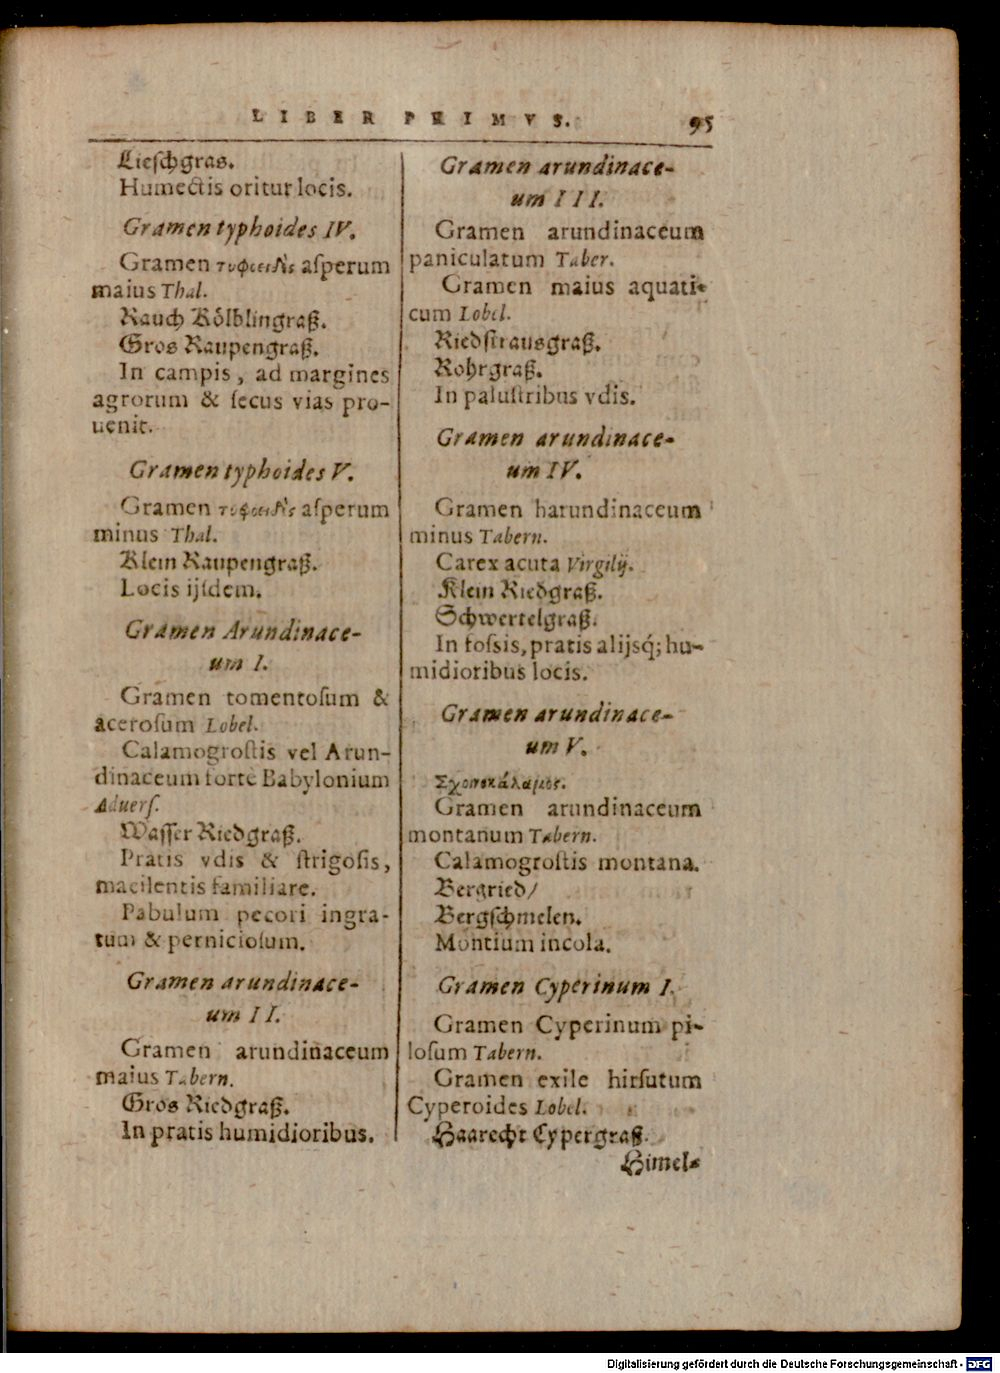 LIBER PRIMVS. 95
Lieſchgras.
Humectis oritur locis.
Gramen typhoides IV.
Gramen τυφοειδὲς aſperum
maius Thal.
Rauch Kölblingraß.
Gros Raupengraß.
In campis, ad margines
agrorum & ſecus vias pro-
uenit.
Gramen typhoides V.
Gramen τυφοειδὲς aſperum
minus Thal.
Klein Raupengraß.
Locis ijſdem.
Gramen Arundinace-
um I.
Gramen tomentoſum &
aceroſum Lobel.
Calamogroſtis vel Arun-
dinaceum forte Babylonium
Aduerſ.
Waſſer Riedgraß.
Pratis vdis & ſtrigoſis,
macilentis familiare.
Pabulum pecori ingra-
tum & pernicioſum.
Gramen arundinace-
um II.
Gramen arundinaceum
maius Tabern.
Gros Riedgraß.
In pratis humidioribus.
Gramen arundinace-
um III.
Gramen arundinaceum
paniculatum Taber.
Gramen maius aquati-
cum Lobel.
Riedſtrausgraß.
Rohrgraß.
In paluſtribus vdis.
Gramen arundinace-
um IV.
Gramen harundinaceum
minus Tabern.
Carex acuta Virgilij.
Klein Riedgraß.
Schwertelgraß.
In foſsis, pratis alijsq́; hu-
midioribus locis.
Gramen arundinace-
um V.
Σχοινοκάλαμος.
Gramen arundinaceum
montanum Tabern.
Calamogroſtis montana.
Bergried/
Bergſchmelen.
Montium incola.
Gramen Cyperinum I.
Gramen Cyperinum pi-
loſum Tabern.
Gramen exile hirſutum
Cyperoides Lobel.
Haarecht Cypergraß.
Himel-
Digitalisierung gefördert durch die Deutsche Forschungsgemeinschaft - DFG